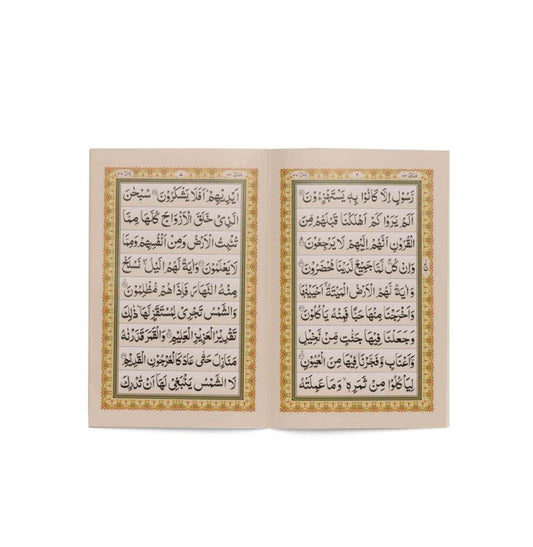 رَسُوْلٍ اِلَّا كَانُوْا بِهٖ يَسْتَهْزِءُوْنَ
اَلَمْ يَرَوْا كَمْ اَهْلَكْنَا قَبْلَهُمْ مِّنَ
الْقُرُوْنِ اَنَّهُمْ اِلَيْهِمْ لَا يَرْجِعُوْنَ
وَاِنْ كُلٌّ لَّمَّا جَمِيْعٌ لَّدَيْنَا مُحْضَرُوْنَ
وَاٰيَةٌ لَّهُمُ الْاَرْضُ الْمَيْتَةُ اَحْيَيْنٰهَا
وَاَخْرَجْنَا مِنْهَا حَبًّا فَمِنْهُ يَاْكُلُوْنَ
وَجَعَلْنَا فِيْهَا جَنّٰتٍ مِّنْ نَّخِيْلٍ
وَّاَعْنَابٍ وَّفَجَّرْنَا فِيْهَا مِنَ الْعُيُوْنِ
لِيَاْكُلُوْا مِنْ ثَمَرِهٖ وَمَا عَمِلَتْهُ
اَيْدِيْهِمْ اَفَلَا يَشْكُرُوْنَ سُبْحٰنَ
الَّذِيْ خَلَقَ الْاَزْوَاجَ كُلَّهَا مِمَّا
تُنْۢبِتُ الْاَرْضُ وَمِنْ اَنْفُسِهِمْ وَمِمَّا
لَا يَعْلَمُوْنَ وَاٰيَةٌ لَّهُمُ الَّيْلُ نَسْلَخُ
مِنْهُ النَّهَارَ فَاِذَا هُمْ مُّظْلِمُوْنَ
وَالشَّمْسُ تَجْرِيْ لِمُسْتَقَرٍّ لَّهَا ذٰلِكَ
تَقْدِيْرُ الْعَزِيْزِ الْعَلِيْمِ وَالْقَمَرَ قَدَّرْنٰهُ
مَنَازِلَ حَتّٰى عَادَ كَالْعُرْجُوْنِ الْقَدِيْمِ
لَا الشَّمْسُ يَنْۢبَغِيْ لَهَا اَنْ تُدْرِكَ